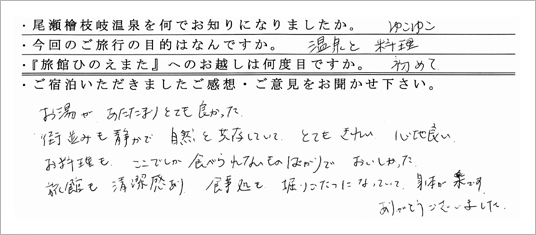 ・尾瀬檜枝岐温泉を何でお知りになりましたか。 ゆこゆこ
・今回のご旅行の目的はなんですか。 温泉と料理
・『旅館ひのえまた』へのお越しは何度目ですか。 初めて
・ご宿泊いただきましたご感想・ご意見をお聞かせ下さい。
お湯が あたたまりとても良かった.
街並みも静かで 自然と共存していて、とてもきれい 心地良い
お料理も、ここでしか食べられないものばかりで おいしかった.
旅館も 清潔感あり 食事処も 堀りごたつになっていて、身体が楽です.
ありがとうございました.